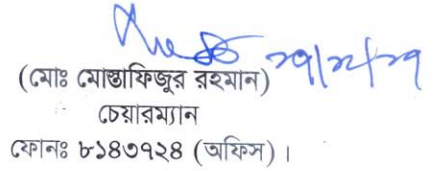 (মোঃ মোস্তাফিজুর রহমান)
চেয়ারম্যান
ফোনঃ ৮১৪৩৭২৪ (অফিস)।